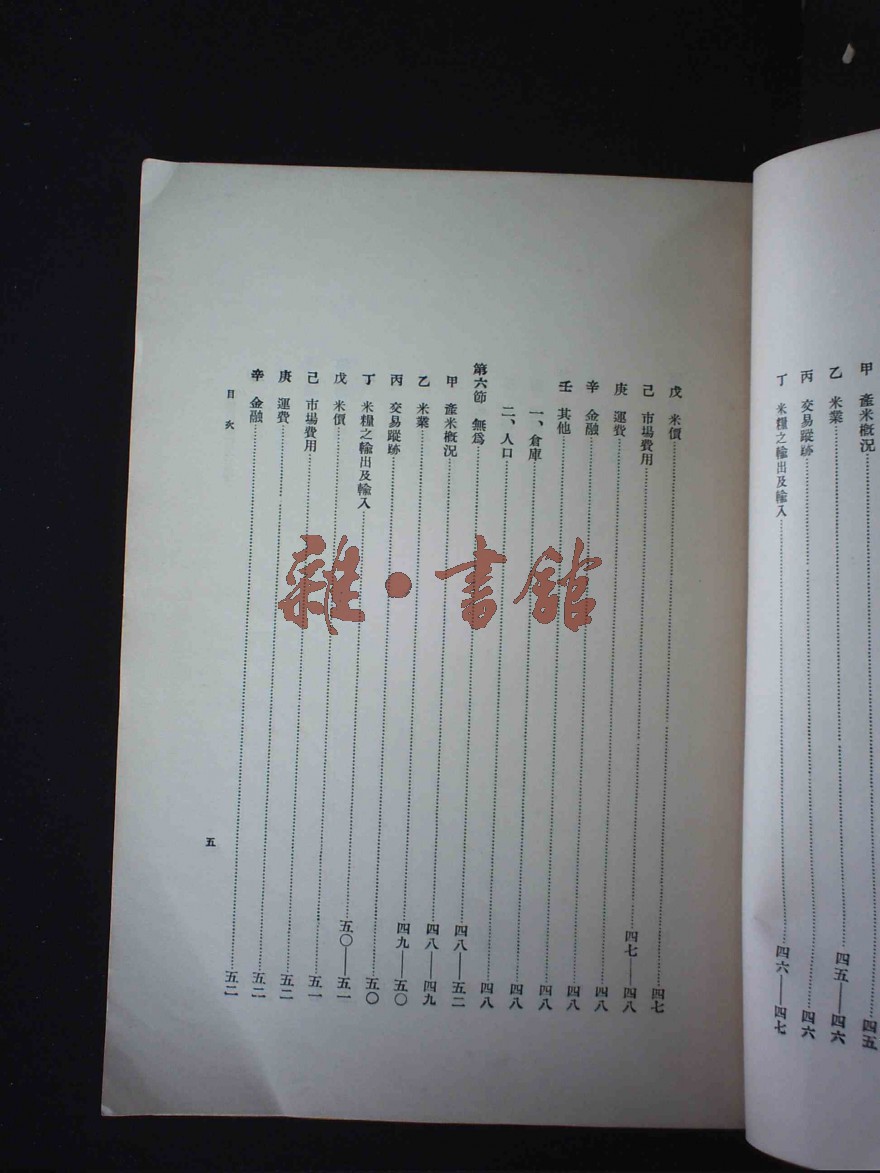 甲 產米概況……四五
乙 米業……四五—四六
丙 交易蹤跡……四六
丁 米糧之輸出及輸入……四六—四七
戊 米價……四七
己 市場費用……四七—四八
庚 運費……四八
辛 金融……四八
壬 其他……四八
一、倉庫……四八
二、人口……四八
第六節 無爲……四八—五二
甲 產米概況……四八—四九
乙 米業……四九—五〇
丙 交易蹤跡……五〇
丁 米糧之輸出及輸入……五〇—五一
戊 米價……五一
己 市場費用……五二
庚 運費……五二
辛 金融……五二
目次
五
雜·書館